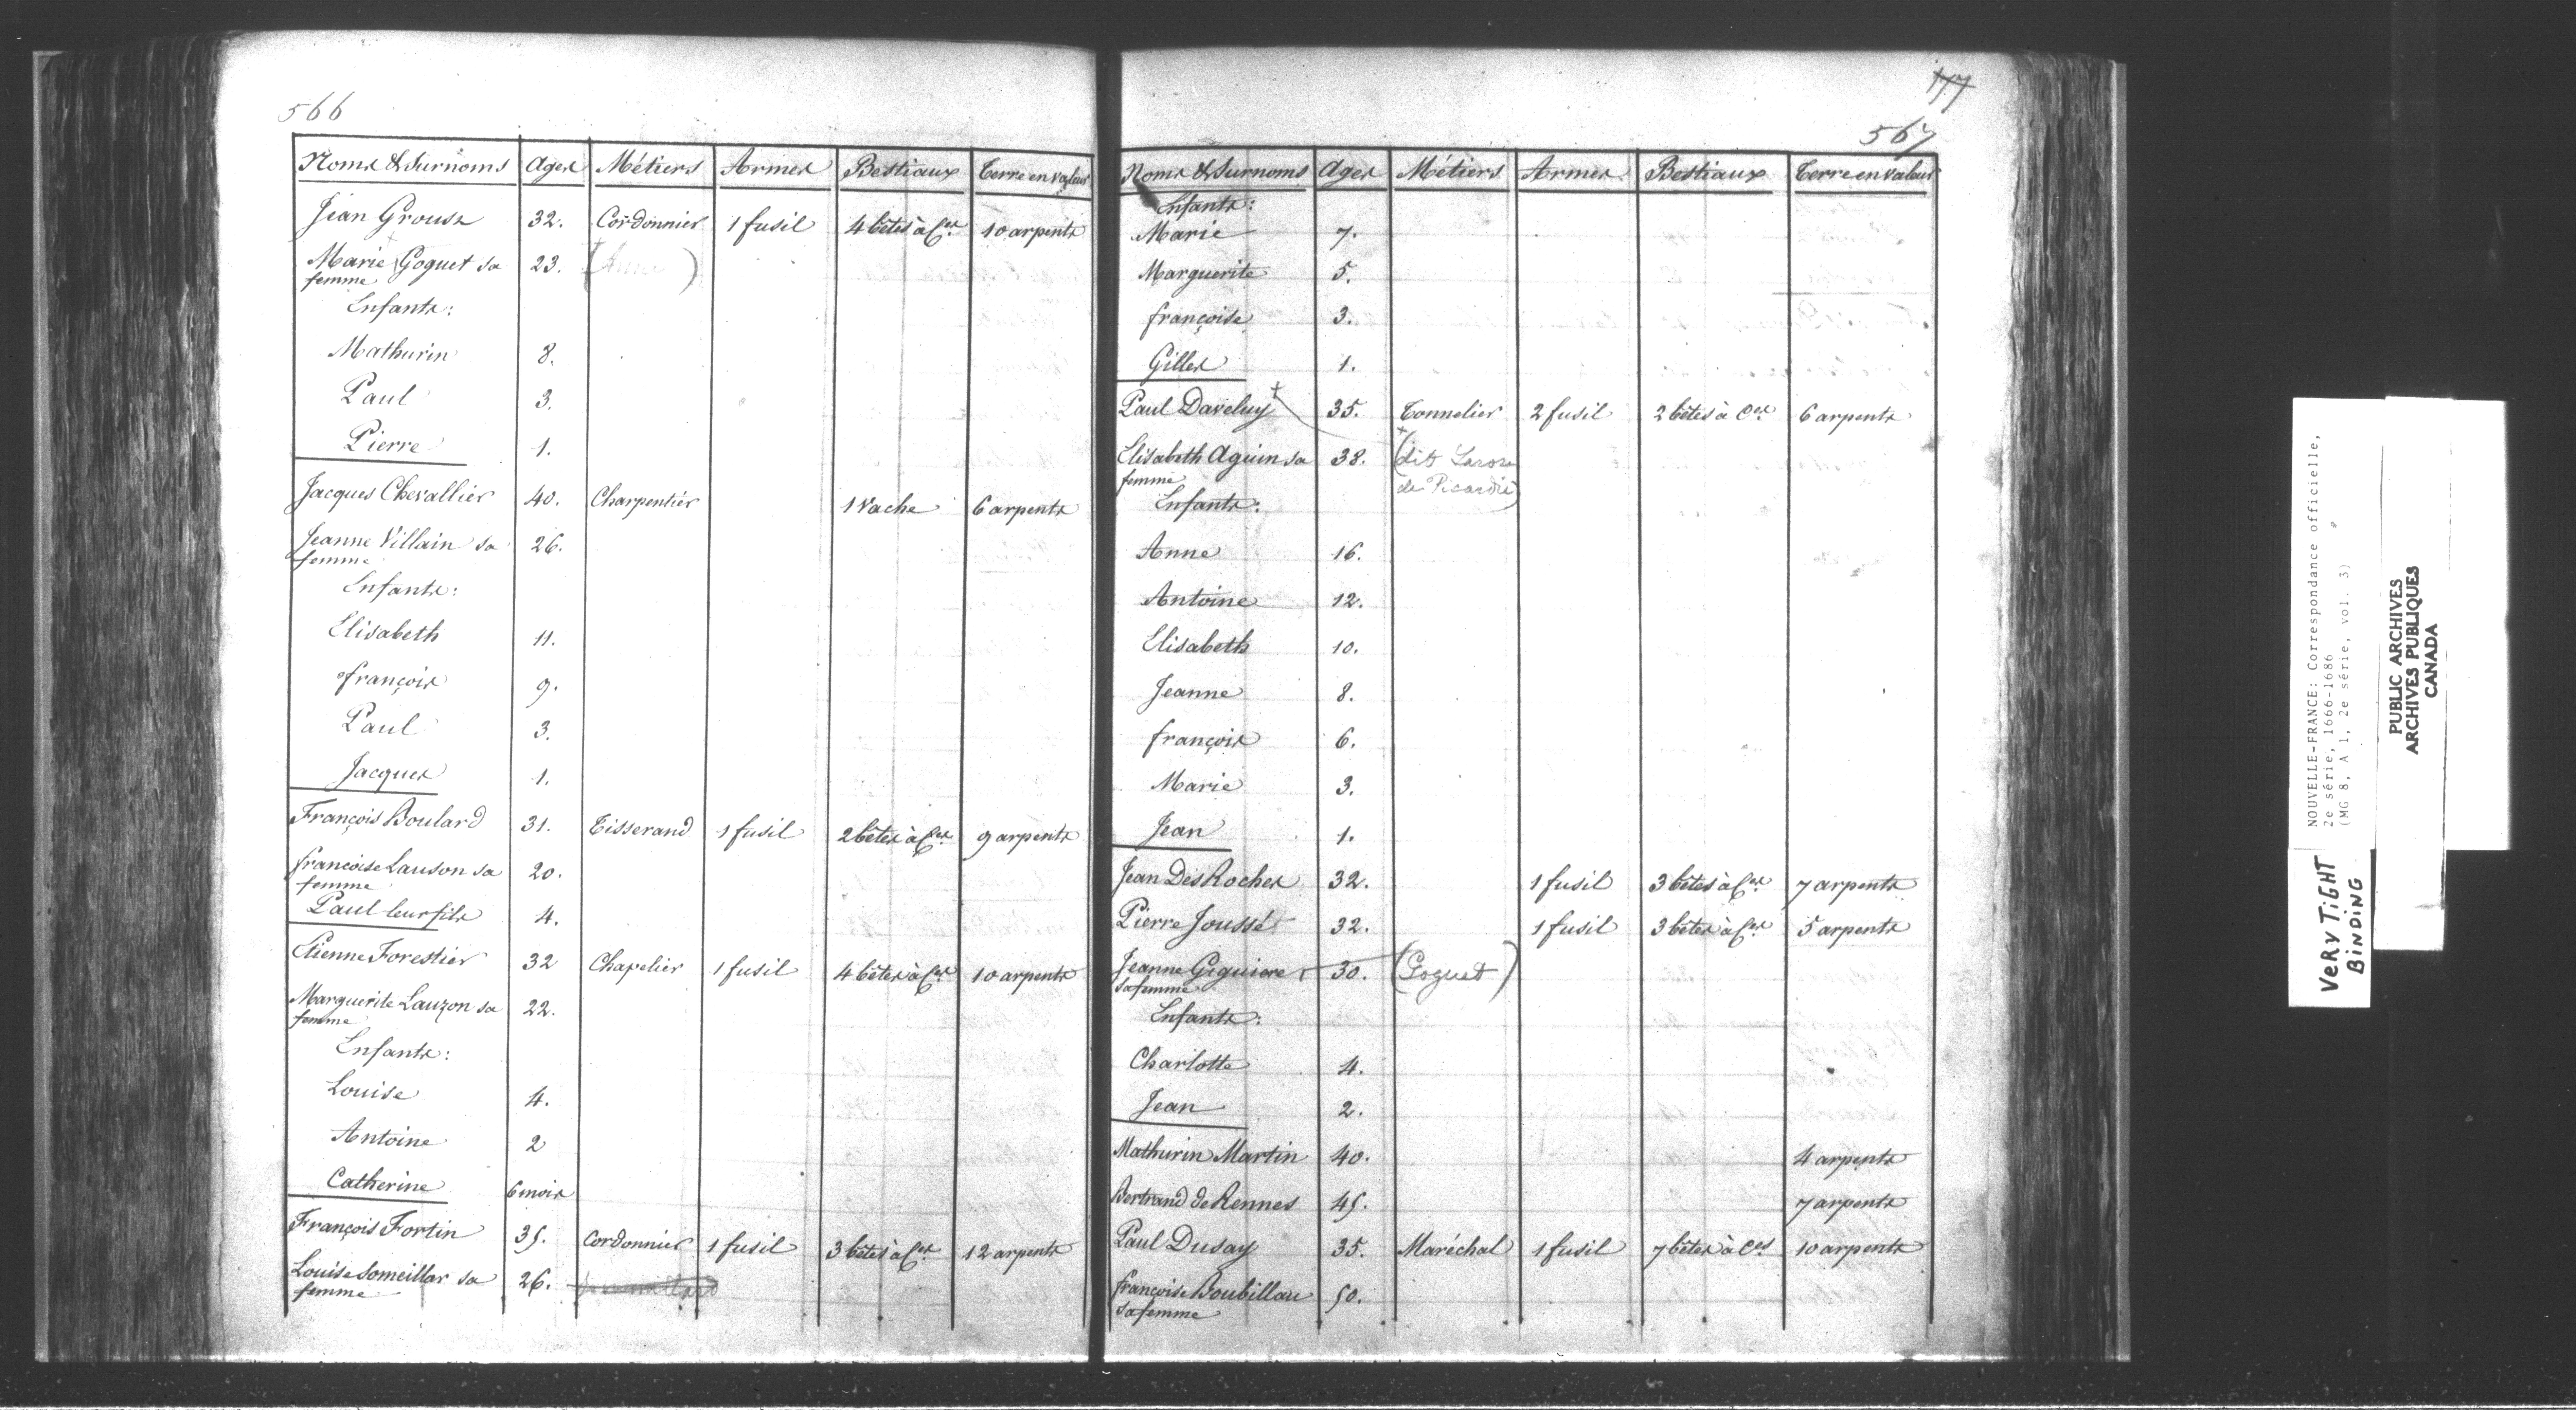 566
Noms & Surnoms Ages Métiers Armes Bestiaux Terre en valeur
Jean Grousx 32. Cordonnier 1 fusil 4 bêtes à Ces 10 arpents
Marie Goguet sa 23. (Anne)
femme
Enfants:
Mathurin 8.
Paul 3.
Pierre 1.
Jacques Chevallier 40. Charpentier 1 vache 6 arpents
Jeanne Villain sa 26.
femme
Enfants:
Elisabeth 11.
françois 9.
Paul 3.
Jacques 1.
François Boulard 31. Tisserand 1 fusil 2 bêtes à Ces 9 arpents
françoise Lauson sa 20.
femme
Paul leur fils 4.
Etienne Forestier 32 Chapelier 1 fusil 4 bêtes à Ces 10 arpents
Marguerite Lauzon sa 22.
femme
Enfants:
Louise 4.
Antoine 2
Catherine 6 mois
François Fortin 35. Cordonnier 1 fusil 3 bêtes à Ces 12 arpents
Louise Someillar sa 26.
femme
177
567
Noms & Surnoms Ages Métiers Armes Bestiaux Terre en valeur
Enfants:
Marie 7.
Marguerite 5.
françoise 3.
Gilles 1.
Paul Daveluy 35. Tonnelier 2 fusil 2 bêtes à Ces 6 arpents
Elisabeth Aguin sa 38. (dit Larose
femme de Picardie)
Enfants:
Anne 16.
Antoine 12.
Elisabeth 10.
Jeanne 8.
françois 6.
Marie 3.
Jean 1.
Jean Des Roches 32. 1 fusil 3 bêtes à Ces 7 arpents
Pierre Joussé 32. 1 fusil 3 bêtes à Ces 5 arpents
Jeanne Giguiere 30. (Goguet)
sa femme
Enfants:
Charlotte 4.
Jean 2.
Mathurin Martin 40. 4 arpents
Bertrand de Rennes 45. 7 arpents
Paul Dusay 35. Maréchal 1 fusil 7 bêtes à Ces 10 arpents
françoise Boubillau 50.
sa femme
NOUVELLE-FRANCE: Correspondance officielle,
2e série, 1666-1686
(MG 8, A 1, 2e série, vol. 3)
VERY TIGHT
BINDING
PUBLIC ARCHIVES
ARCHIVES PUBLIQUES
CANADA